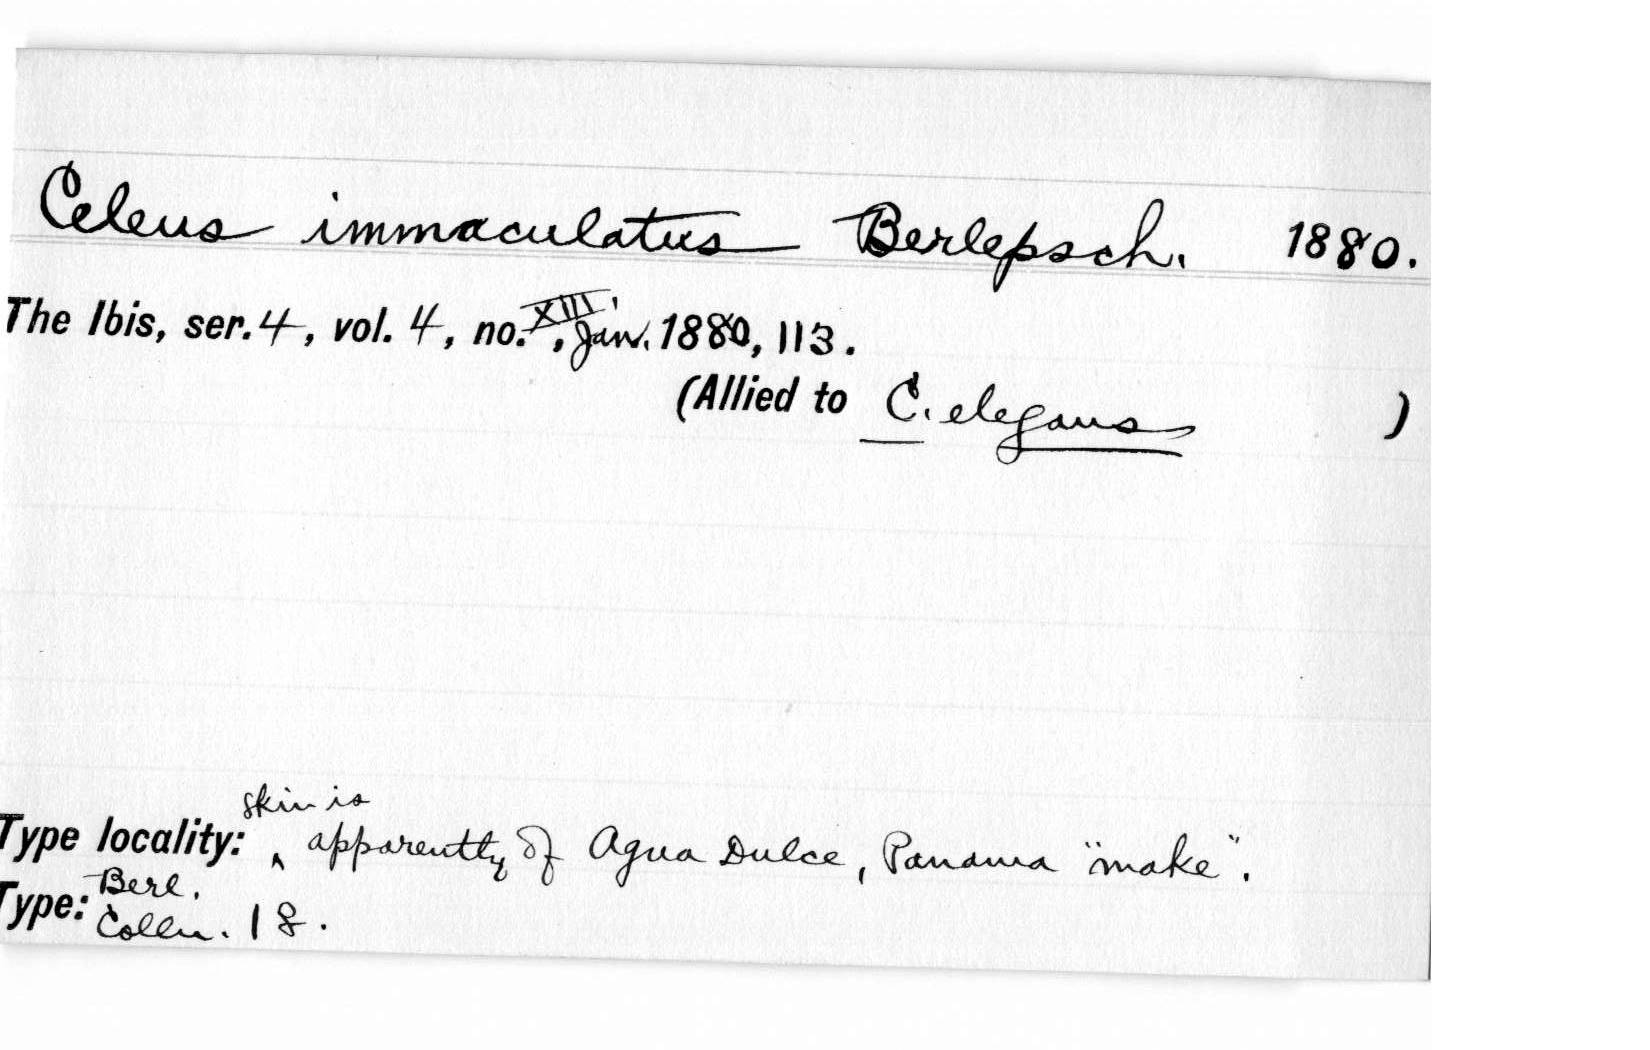 Celeus immaculatus Berlepsch. 1880.
The Ibis, ser. 4, vol. 4, no. XIII, Jan. 1880, 113.
(Allied to C. elegans )
Type locality: skin is apparently of Agua Dulce, Panama "make".
Type: Berl. Colln. 1 8.